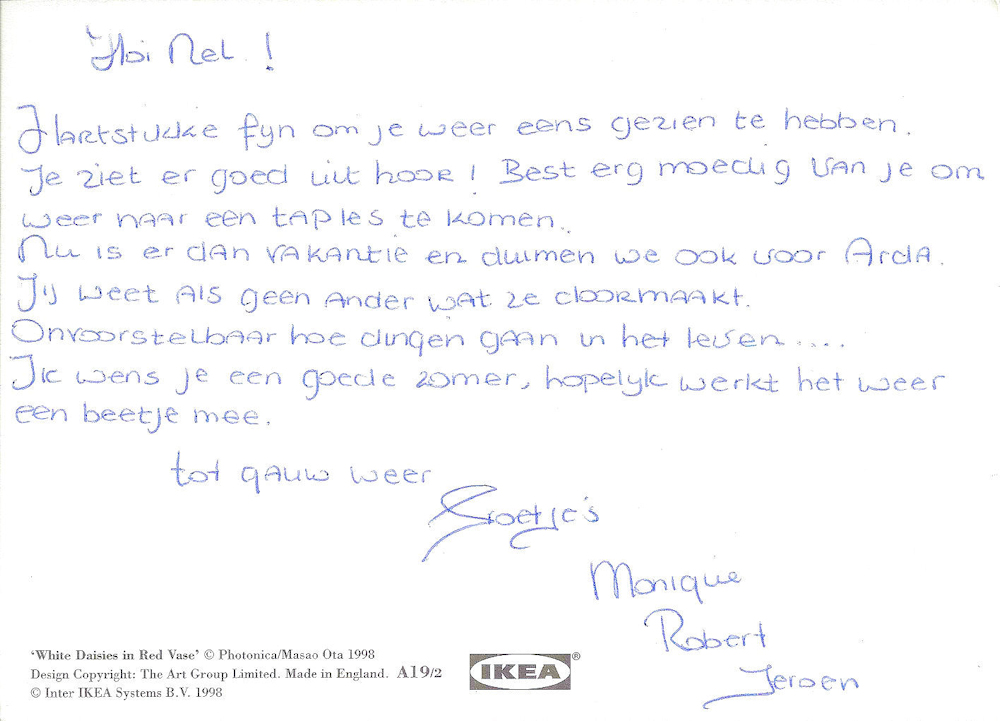 Hoi Nel !
Hartstukke fijn om je weer eens gezien te hebben.
Je ziet er goed uit hoor! Best erg moedig van je om
weer naar een taples te komen.
Nu is er dan vakantie en duimen we ook voor Arda.
Jij weet als geen ander wat ze doormaakt.
Onvoorstelbaar hoe dingen gaan in het leven....
Ik wens je een goede zomer, hopelijk werkt het weer
een beetje mee.
tot gauw weer
Groetje's
Monique
Robert
Jeroen
'White Daisies in Red Vase' © Photonica/Masao Ota 1998
Design Copyright: The Art Group Limited. Made in England. A19/2
© Inter IKEA Systems B.V. 1998
IKEA®